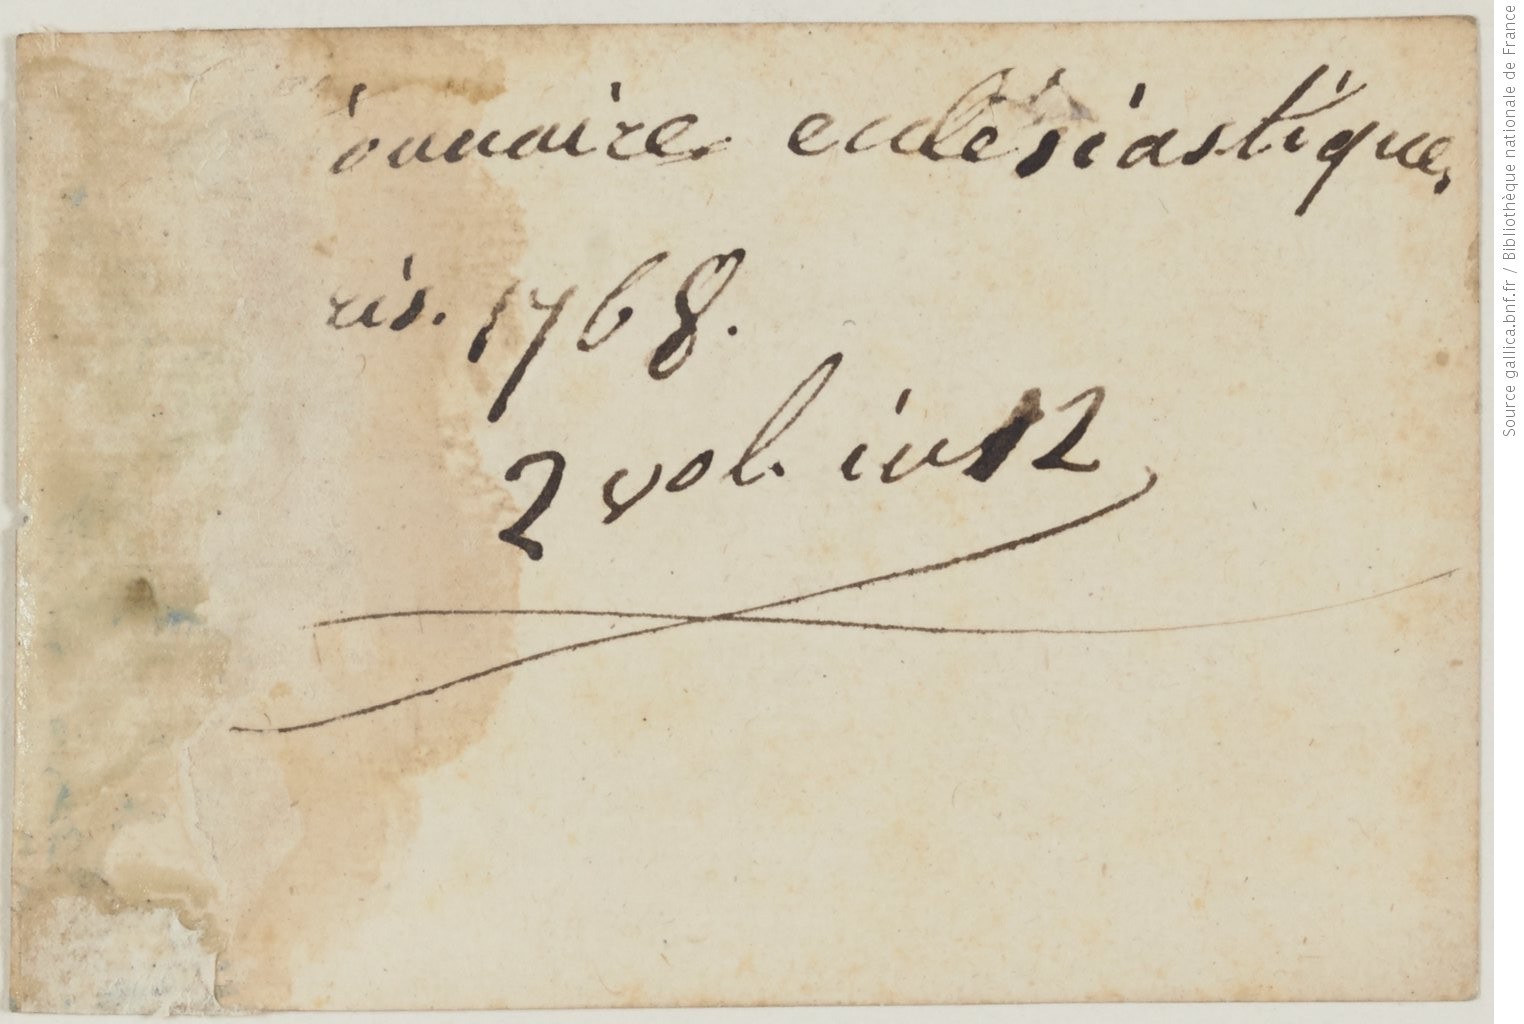 ionnaire ecclésiastique,
ris. 1768.
2 vol. in 12
Source gallica.bnf.fr / Bibliothèque nationale de France